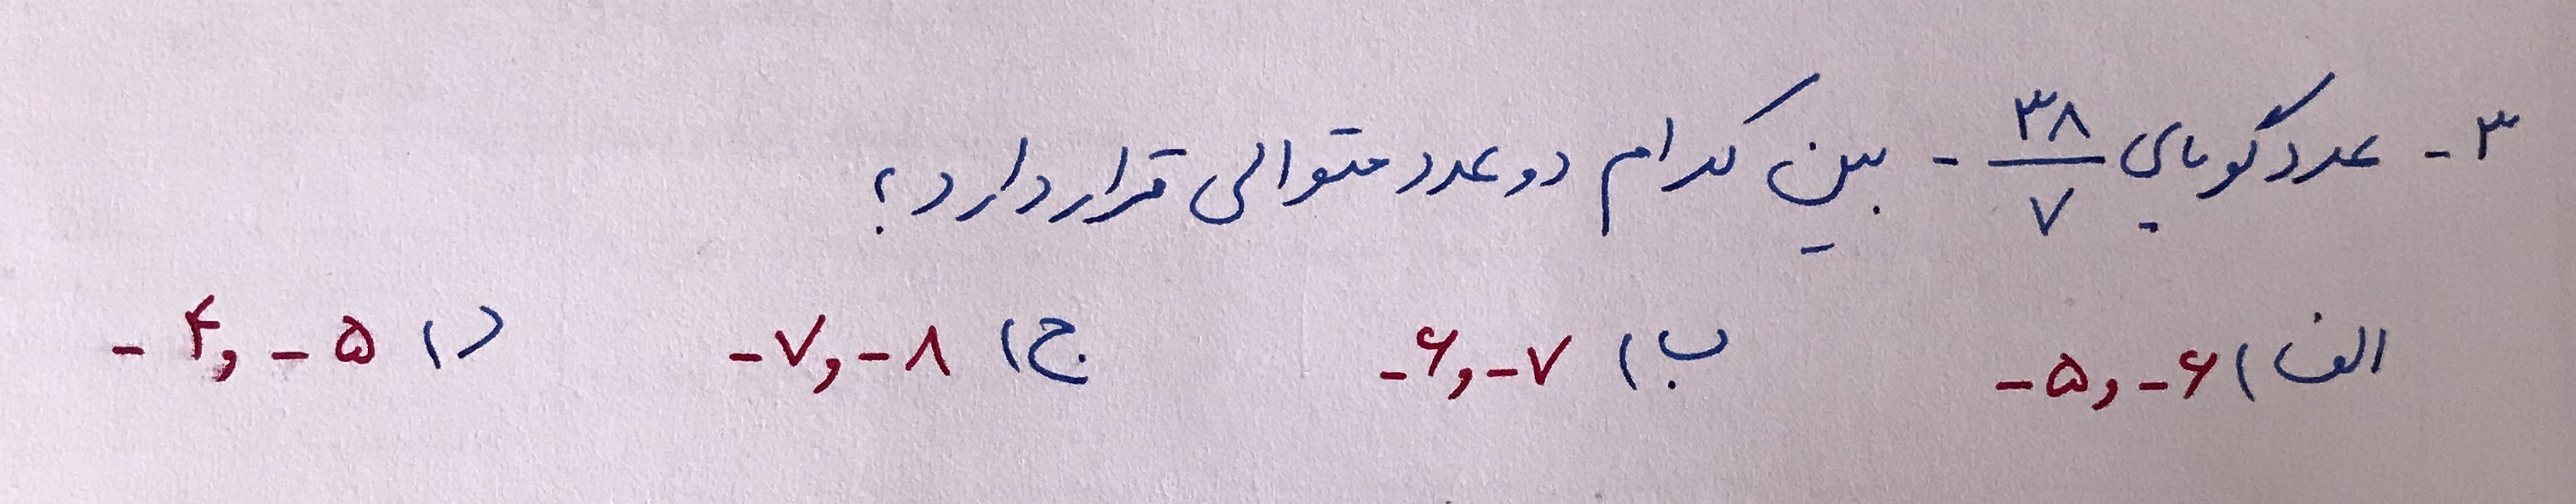 ۳- عدد گویای ۳۸/۷ - بین کدام دو عدد متوالی قرار دارد؟
الف) ۶- و ۵- ب) ۷- و ۶- ج) ۸- و ۷- د) ۵- و ۴-